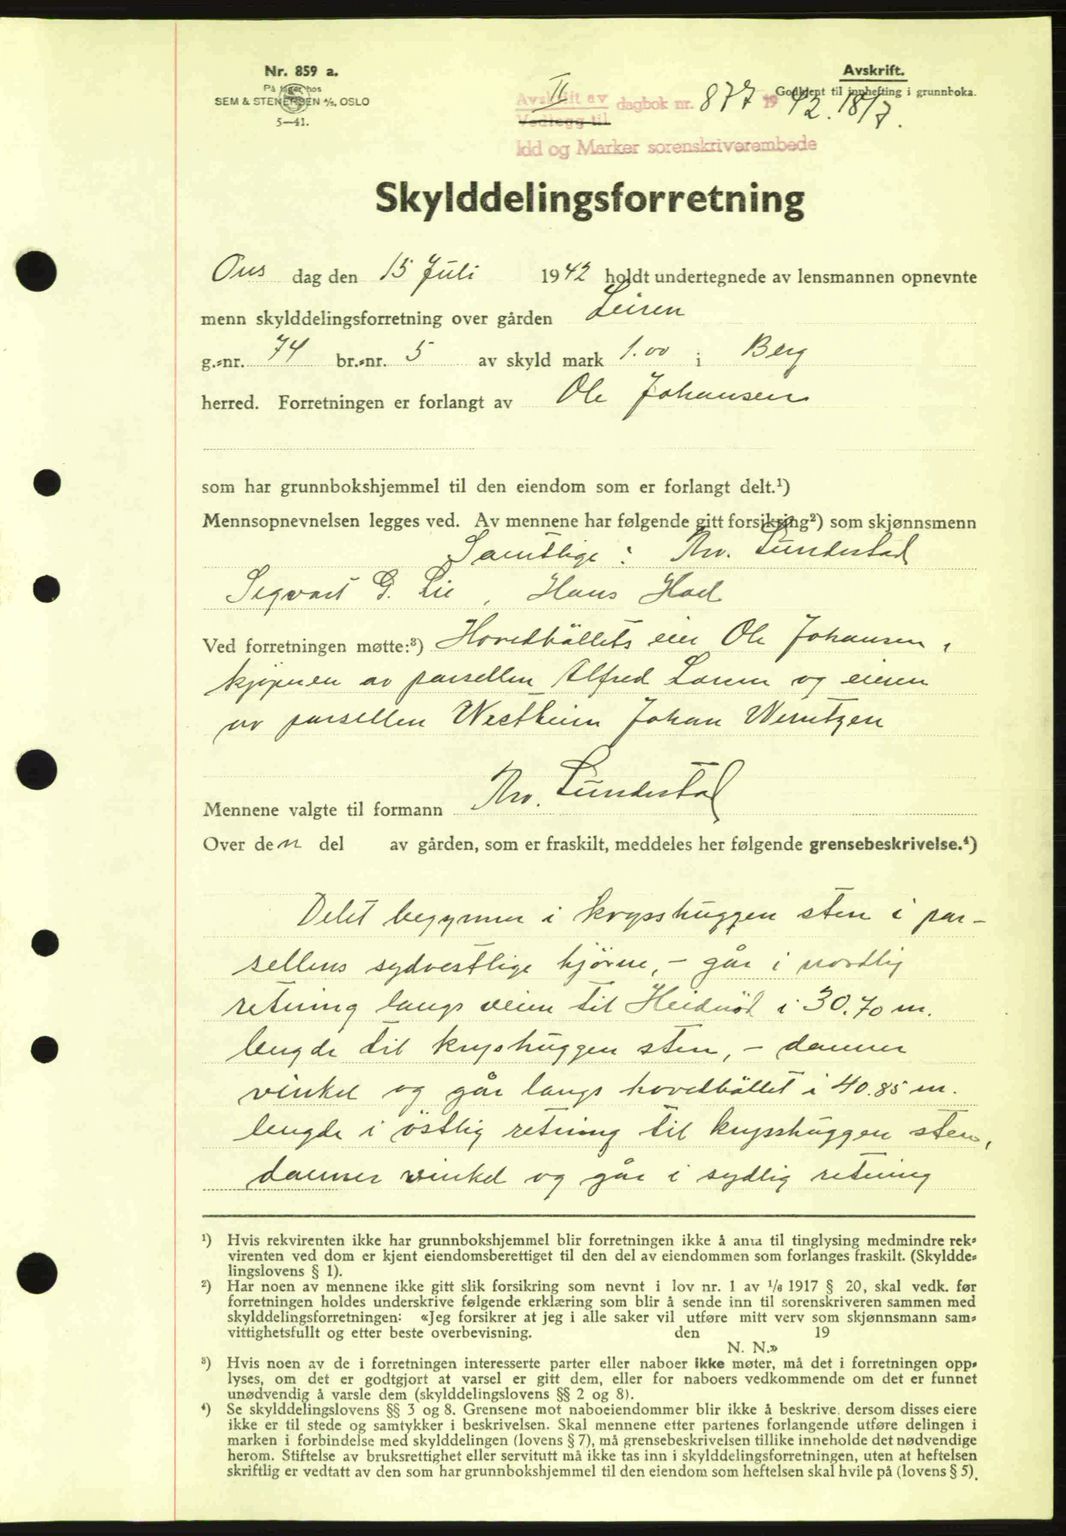 Nr. 859 a.
På lager hos
SEM & STENERSEN A/S, OSLO
5—41.
Avskrift.
Godkjent til innhefting i grunnboka.
II
Avskrift av
Vedlegg til
dagbok nr. 877 1942. 18/7.
Idd og Marker sorenskriverembede
Skylddelingsforretning
Ons dag den 15 Juli 1942 holdt undertegnede av lensmannen opnevnte
menn skylddelingsforretning over gården Leiren
g.-nr. 74 br.-nr. 5 av skyld mark 1.00 i Berg
herred. Forretningen er forlangt av Ole Johansen
som har grunnbokshjemmel til den eiendom som er forlangt delt.¹)
Mennsopnevnelsen legges ved. Av mennene har følgende gitt forsikring²) som skjønnsmenn
Samtlige: Arv. Lundestad
Sigvart G. Lie, Hans Hoel
Ved forretningen møtte:³) Hovedbøllets eier Ole Johansen,
kjøperen av parsellen Alfred Larsen og eieren
av parsellen Westheim Johan Werntzen
Mennene valgte til formann Arv. Lundestad
Over den del av gården, som er fraskilt, meddeles her følgende grensebeskrivelse.⁴)
Delet begynner i krysshuggen sten i par-
sellens sydvestlige hjörne, - går i nordlig
retning langs veien til i 30.70 m.
lengde til kryshuggen sten, - danner
vinkel og går langs hovedböllet i 40.85 m.
lengde i östlig retning til krysshuggen sten,
danner vinkel og går i sydlig retning
¹) Hvis rekvirenten ikke har grunnbokshjemmel blir forretningen ikke å anta til tinglysing medmindre rek-
virenten ved dom er kjent eiendomsberettiget til den del av eiendommen som forlanges fraskilt. (Skyldde-
lingslovens § 1).
²) Har noen av mennene ikke gitt slik forsikring som nevnt i lov nr. 1 av ¹/₆ 1917 § 20, skal vedk. før
forretningen holdes underskrive følgende erklæring som blir å sende inn til sorenskriveren sammen med
skylddelingsforretningen: «Jeg forsikrer at jeg i alle saker vil utføre mitt verv som skjønnsmann sam-
vittighetsfullt og etter beste overbevisning. den 19
N. N.»
³) Hvis noen av de i forretningen interesserte parter eller naboer ikke møter, må det i forretningen opp-
lyses, om det er godtgjort at varsel er gitt dem, eller for naboers vedkommende om det er funnet
unødvendig å varsle dem (skylddelingslovens §§ 2 og 8).
⁴) Se skylddelingslovens §§ 3 og 8. Grensene mot naboeiendommer blir ikke å beskrive, dersom disses eiere
ikke er til stede og samtykker i beskrivelsen. Skal mennene etter partenes forlangende utføre delingen i
marken i forbindelse med skylddelingen (lovens § 7), må grensebeskrivelsen tillike inneholde det nødvendige
herom. Stiftelse av bruksrettighet eller servitutt må ikke tas inn i skylddelingsforretningen, uten at heftelsen
skriftlig er vedtatt av den som har grunnbokshjemmel til den eiendom som heftelsen skal hvile på (lovens § 5).